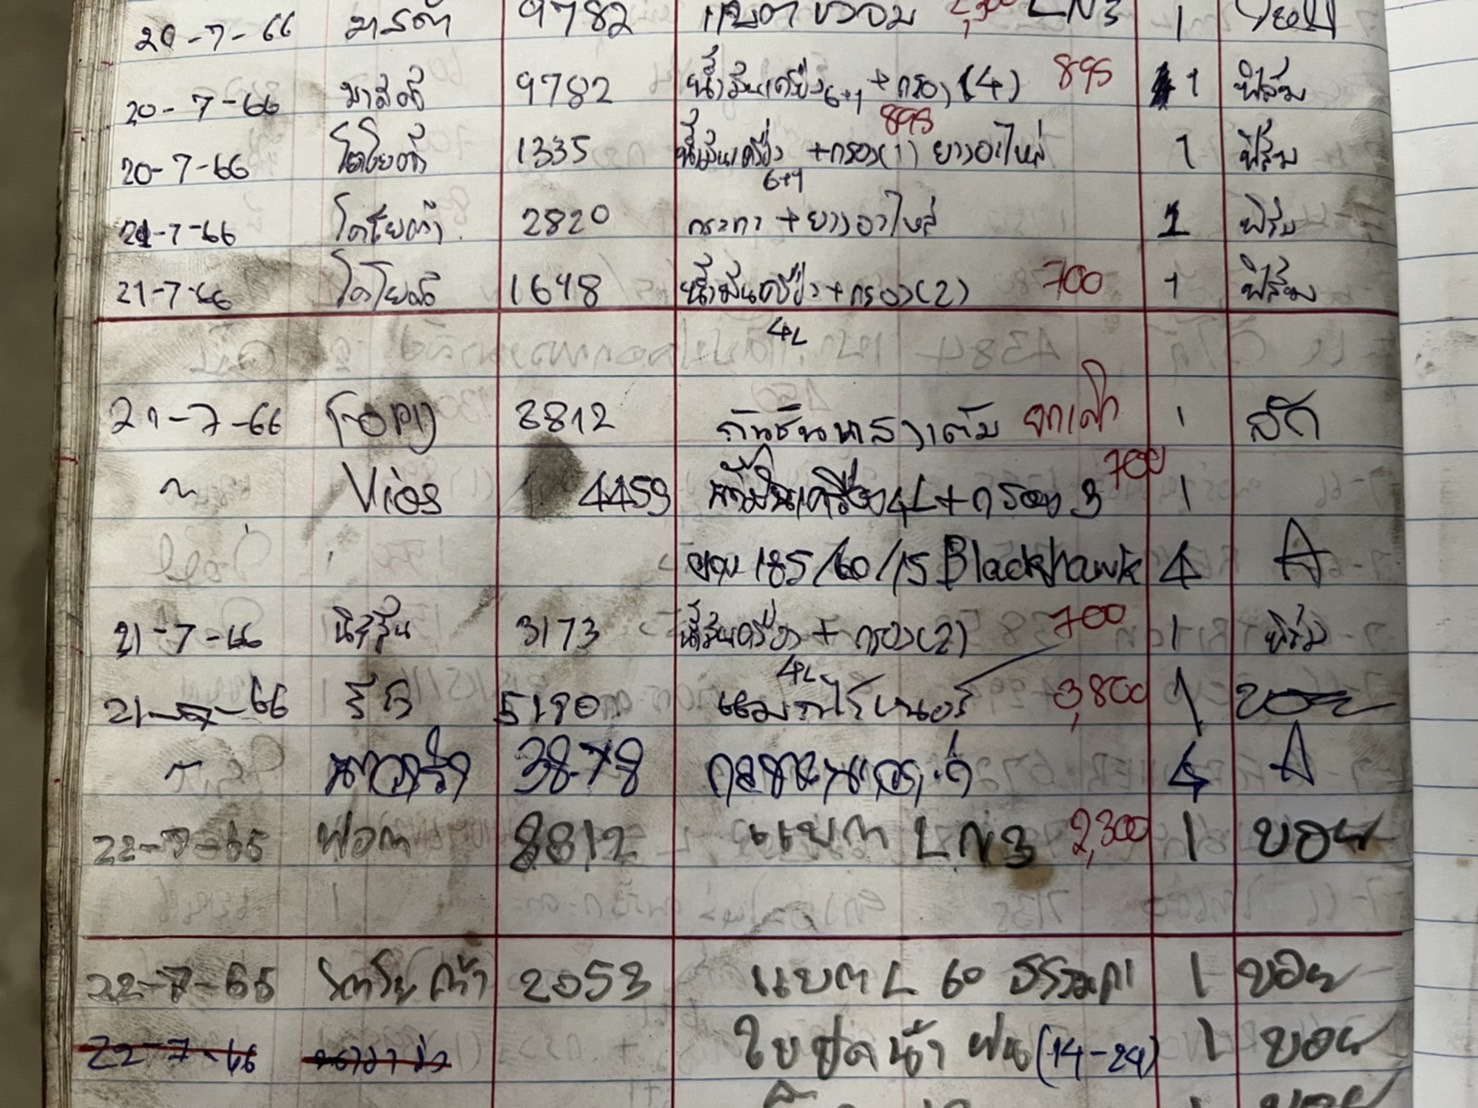 20-7-66 มาสด้า 9782 แบตขอบ 2,300 LN3 1
20-7-66 มาสด้า 9782 น้ำมันเครื่อง 6+1 +กรอง (4) 895 1 ฟิล์ม
20-7-66 โตโยต้า 1335 น้ำมันเครื่อง 6+1 +กรอง(1) ยางอะไหล่ 895 1 ฟิล์ม
21-7-66 โตโยต้า 2820 + ยางอะไหล่ 1 ฟิล์ม
21-7-66 โตโยต้า 1648 น้ำมันเครื่อง+กรอง(2) 700 1 ฟิล์ม
4L
21-7-66 8812 1
~ Vios 4459 น้ำมันเครื่อง 4L+กรอง 3 700 1
ยาง 185/60/15 Blackhawk 4 A
21-7-66 นิสสัน 3173 น้ำมันเครื่อง + กรอง(2) 700 1 ฟิล์ม
4L
21-7-66 รีโว่ 5190 3,800 1 บอย
~ นาวาร่า 3878 4 A
22-7-65 ฟอด 8812 แบต LN3 2,300 1 บอย
22-7-65 โตโยต้า 2053 แบต L 60 ธรรมดา 1 บอย
22-7-66 นาวาร่า ใบปัดน้ำฝน (14-24) 1 บอย